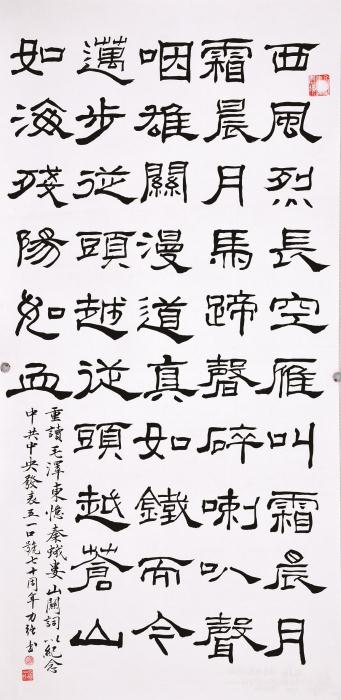 西風烈長空雁叫霜晨月
霜晨月馬蹄聲碎喇叭聲
咽雄關漫道真如鐵而今
邁步從頭越從頭越蒼山
如海殘陽如血
重讀毛澤東憶秦娥婁山關詞以紀念
中共中央發表五一口號七十周年